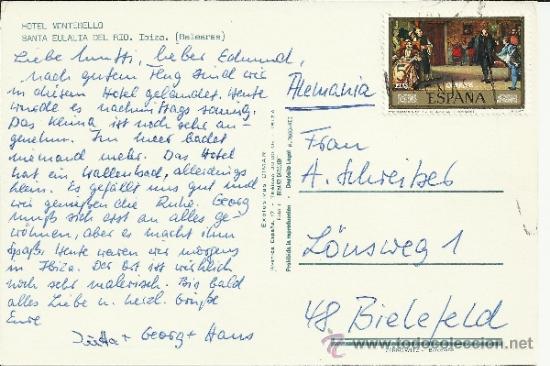 HOTEL MONTEMELLO
SANTA EULALIA DEL RIO. Ibiza. (Baleares)
Liebe Mutti, lieber Edmund,
nach gutem Flug sind wir
in diesem Hotel gelandet. Heute
wurde es nachmittags sonnig.
Das Klima ist noch sehr an-
genehm. Im Meer badet
niemand mehr. Das Hotel
hat ein Hallenbad, allerdings
klein. Es gefällt uns gut und
wir genießen die Ruhe. Georg
muß sich erst an alles ge-
wöhnen, aber es macht ihm
Spaß. Heute waren wir morgens
in Ibiza. Der Ort ist wirklich
noch sehr malerisch. Bis bald
alles Liebe u. herzl. Grüße
Eure
Jutta + Georg + Hans
Prohibida la reproducción
Depósito Legal
ESPAÑA
CORREOS
Alemania
Frau
A. Schreiber
Lönsweg 1
48 Bielefeld
todocoleccion.net